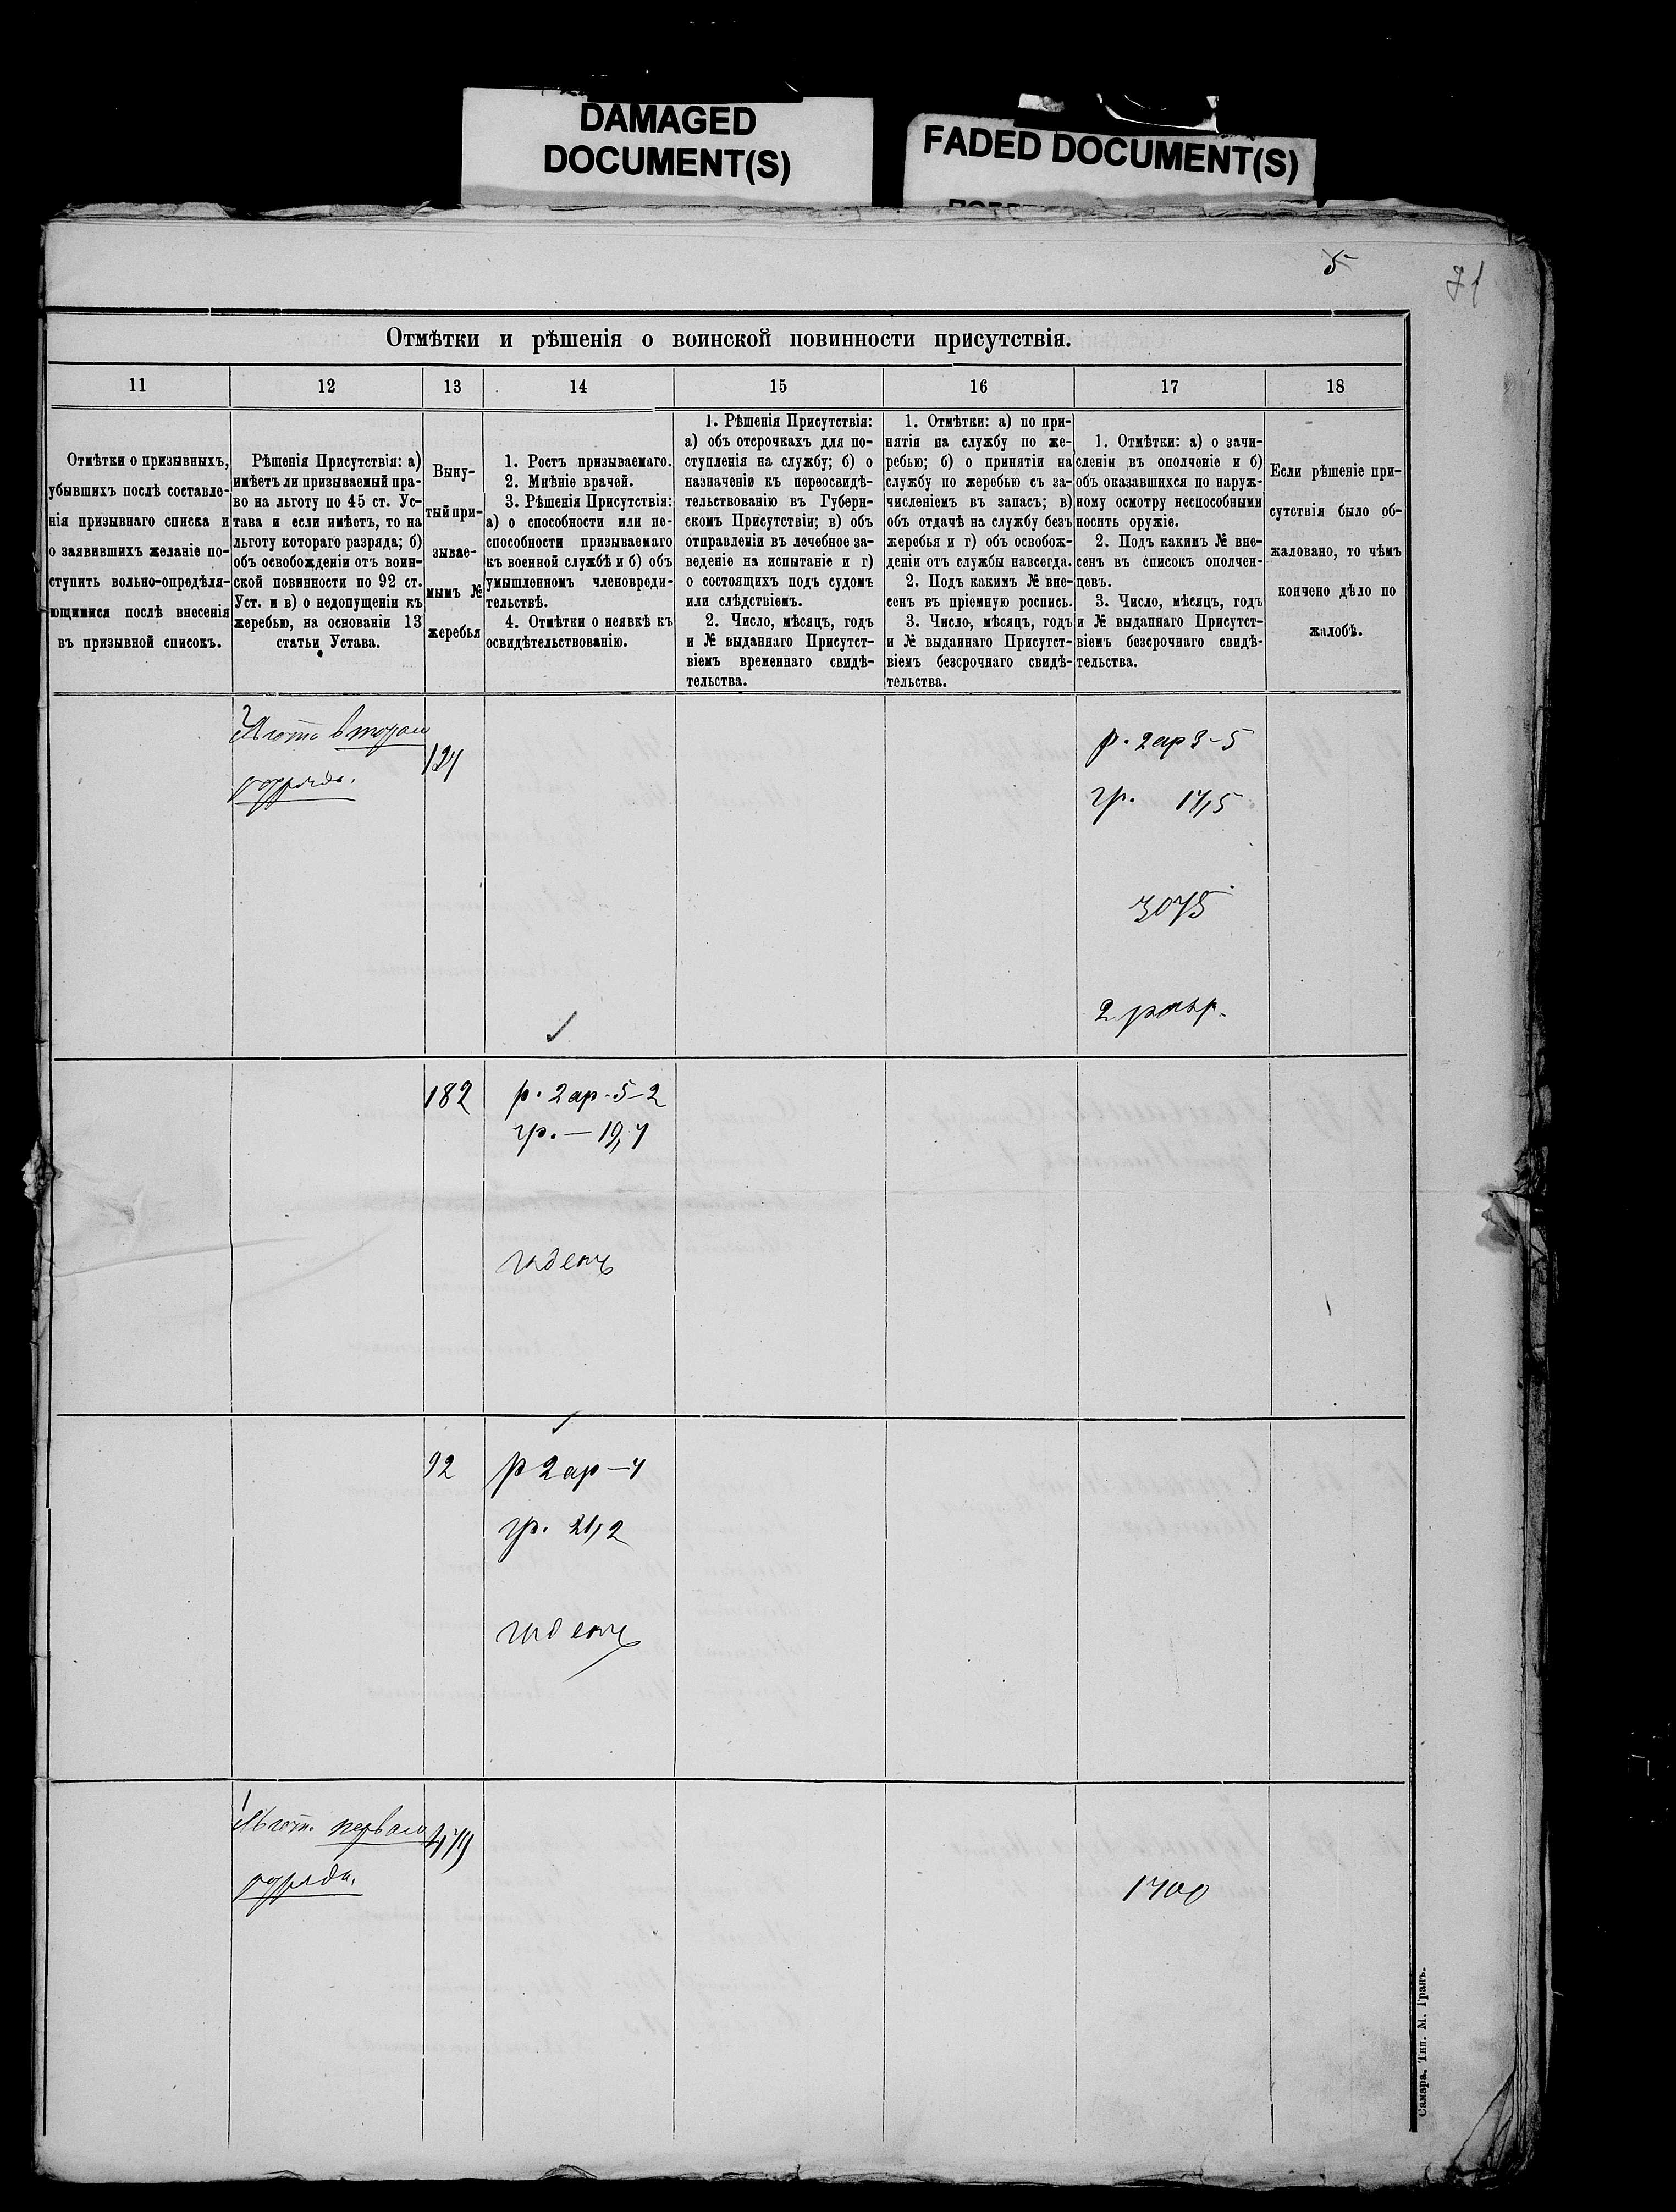 DAMAGED
DOCUMENT(S)
FADED DOCUMENT(S)
5
71
Отмѣтки и рѣшенія о воинской повинности присутствія.
11
12
13
14
15
16
17
18
Отмѣтки о призывныхъ,
убывшихъ послѣ составле-
нія призывнаго списка и
о заявившихъ желаніе по-
ступить вольно-опредѣля-
ющимися послѣ внесенія
въ призывной списокъ.
Рѣшенія Присутствія: а)
имѣетъ ли призываемый пра-
во на льготу по 45 ст. Ус-
тава и если имѣетъ, то на
льготу котораго разряда; б)
объ освобожденіи отъ воин-
ской повинности по 92 ст.
Уст. и в) о недопущеніи къ
жеребью, на основаніи 13
статьи Устава.
Выну-
тый при-
зывае-
мымъ №
жеребья
1. Ростъ призываемаго.
2. Мнѣніе врачей.
3. Рѣшенія Присутствія:
а) о способности или не-
способности призываемаго
къ военной службѣ и б) объ
умышленномъ членовреди-
тельствѣ.
4. Отмѣтки о неявкѣ къ
освидѣтельствованію.
1. Рѣшенія Присутствія:
а) объ отсрочкахъ для по-
ступленія на службу; б) о
назначеніи къ переосвидѣ-
тельствованію въ Губерн-
скомъ Присутствіи; в) объ
отправленіи въ лечебное за-
веденіе на испытаніе и г)
о состоящихъ подъ судомъ
или слѣдствіемъ.
2. Число, мѣсяцъ, годъ
и № выданнаго Присутст-
віемъ временнаго свидѣ-
тельства.
1. Отмѣтки: а) по при-
нятіи на службу по же-
ребью; б) о принятіи на
службу по жеребью съ за-
численіемъ въ запасъ; в)
объ отдачѣ на службу безъ
жеребья и г) объ освобож-
деніи отъ службы навсегда.
2. Подъ какимъ № вне-
сенъ въ пріемную роспись.
3. Число, мѣсяцъ, годъ
и № выданнаго Присутст-
віемъ безсрочнаго свидѣ-
тельства.
1. Отмѣтки: а) о зачи-
сленіи въ ополченіе и б)
объ оказавшихся по наруж-
ному осмотру неспособными
носить оружіе.
2. Подъ какимъ № вне-
сенъ въ списокъ ополчен-
цевъ.
3. Число, мѣсяцъ, годъ
и № выданнаго Присутст-
віемъ безсрочнаго свидѣ-
тельства.
Если рѣшеніе при-
сутствія было об-
жаловано, то чѣмъ
кончено дѣло по
жалобѣ.
2
Льгота втораго
разряда.
124
р. 2 ар 3-5
гр. 17,5
3075
2 разр.
182
р. 2 ар - 5-2
гр. — 19,4
годенъ
92
р 2 ар — 4
гр. 21,2
годенъ
1
Льгот. перваго
разряда.
479
1700
Самара. Тип. М. Гранъ.